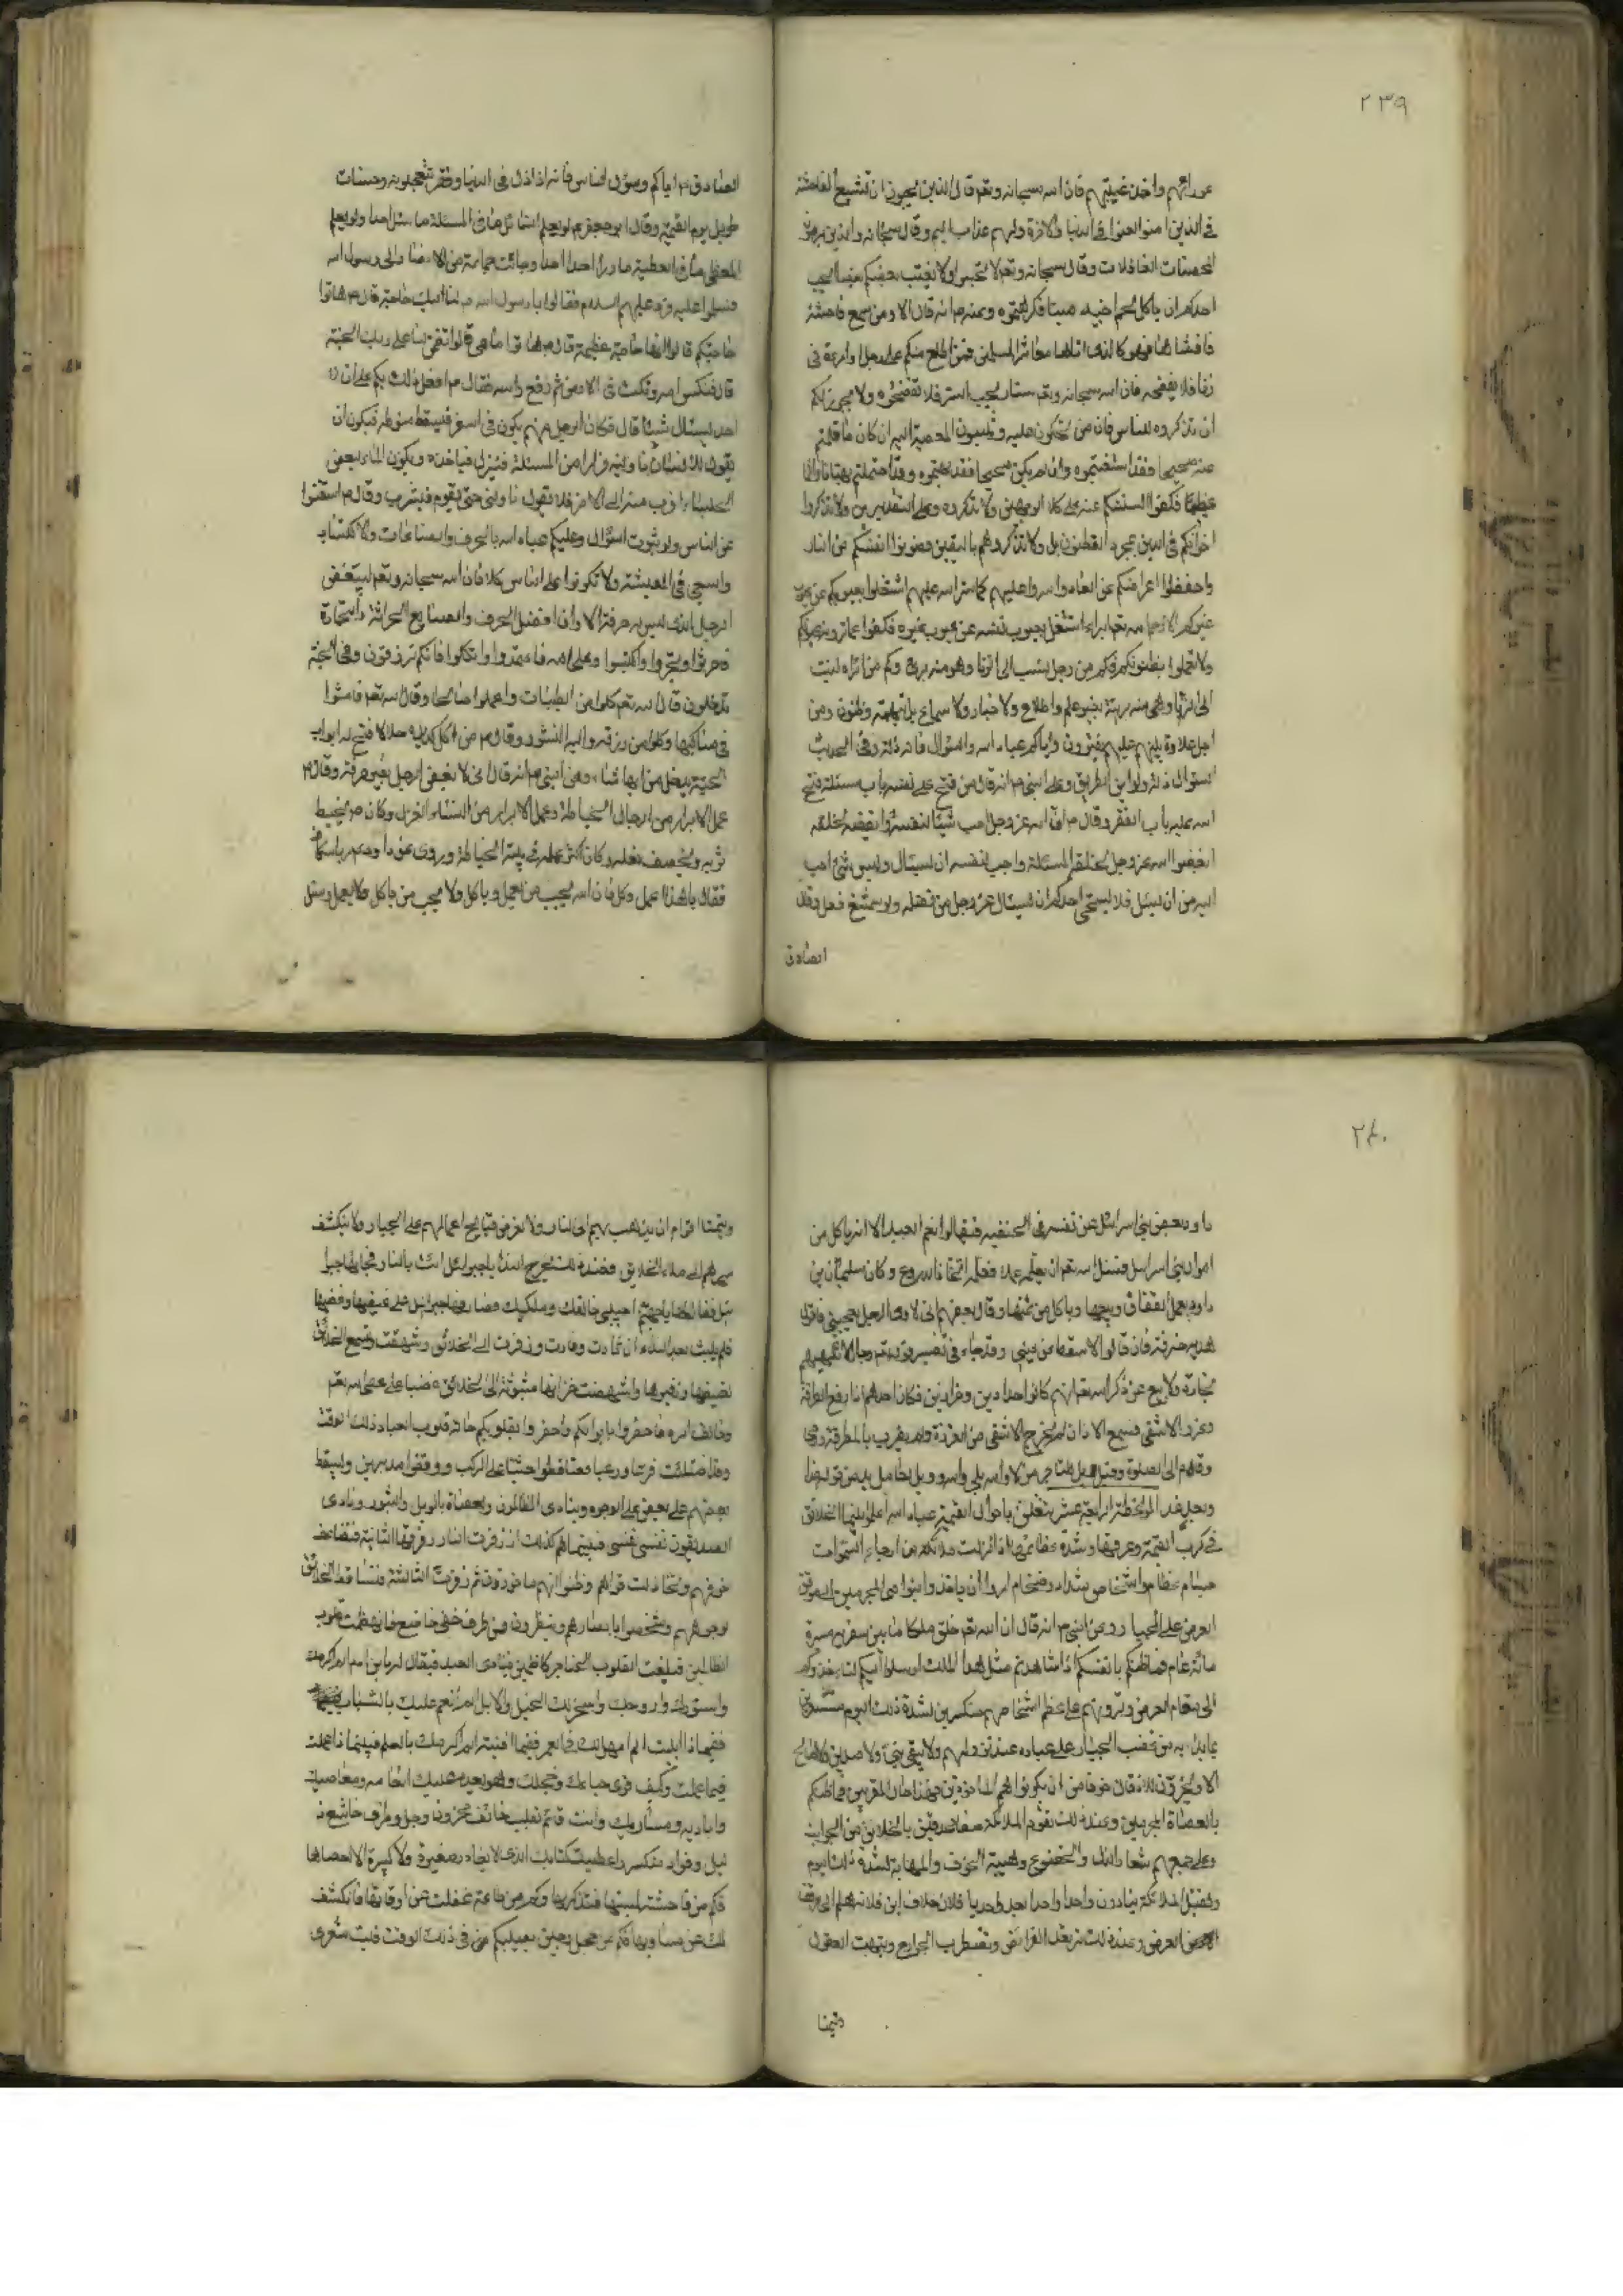 ٢٣٩
عوراتهم واخذ غيبتهم فان الله سبحانه وتعم قال الذين يحبون ان تشيع الفاحشة
في الذين امنوا لعنوا في الدنيا والاخرة ولهم عذاب اليم وقال سبحانه والذين يرمون
المحصنات الغافلات وقال سبحانه وتعم ولا تجسسوا ولا يغتب بعضكم بعضا ايحب
احدكم ان ياكل لحم اخيه ميتا فكرهتموه وعنه م انه قال الا ومن سمع فاحشة
فافشاها فهو كالذي اتاها معاشر المسلمين فمن اطلع منكم على رجل او امرءة في
زنا فلا يفضحه فان الله سبحانه وتعم ستار يحب الستر فلا تفضحوه ولا يجوز لكم
ان تذكروه للناس فان من تحكون عليه وتنسبون المعصية اليه ان كان ما قلتم
عنه صحيحا فقد استغبتموه وان لم يكن صحيحا فقد بهتموه وقد احتملتم بهتانا واثما
عظيما فكفوا السنتكم عنه على كلا الوجهين ولا تذكروه وعلى التقديرين ولا تذكروا
اخوانكم في الدين بمجرد الظنون بل ولا تذكروهم باليقين وصونوا انفسكم من النار
واحفظوا اعراضكم عن العار واستروا عليهم كما ستر الله عليهم اشتغلوا بعيوبكم عن عيوب
غيركم الا رحم الله تعم امرءا اشتغل بعيوب نفسه عن عيوب غيره فكفوا عما تروه بعيونكم
ولا تحملوا بظنونكم فكم من رجل ينسب الى الزنا وهو منه برئ وكم من امراة نسبت
الى الزنا وهي منه بريئة بغير علم واطلاع ولا اخبار ولا سماع بل بتهمة وظنون ومن
اجل علاوة بينهم عليهم يفترون واياكم عباد الله والسؤال فانه ذلة وفي الحديث
السؤال ذلة ولو اين الطريق وعن النبي م انه قال من فتح على نفسه باب مسئلة فتح
الله عليه باب الفقر وقال م ان الله عز وجل احب شيئا لنفسه وابغضه لخلقه
ابغض الله عز وجل لخلقه المسئلة واحب لنفسه ان يسئال وليس شئ احب
اليه من ان يسئل فلا يستحي احدكم ان يسئال عز وجل من فضله ولو شسع نعل وقال
الصادق
الصادق م اياكم وسؤال الناس فانه اذا ذل في الدنيا وفقر تتعجلونه وحساب
طويل يوم القيمة وقال ابو جعفر م لو يعلم السائل ما في المسئلة ما سئل احدا ولو يعلم
المعطي ما في العطية ما رد احدا احدا وجائت جماعة من الانصار الى رسول الله
فسلموا عليه ورد عليهم السلام فقالوا يا رسول الله م لنا اليك حاجة قال م هاتوا
حاجتكم قالوا انها حاجة عظيمة قال م هاتوا ما هي قالوا تضمن لنا على ربك الجنة
قال فنكس راسه ونكت في الارض ثم رفع راسه فقال م افعل ذلك بكم على ان لا
احد يسئال شيئا قال فكان الرجل منهم يكون في السفر فيسقط سوطه فيكره ان
يقول لانسان ناولنيه فرارا من المسئلة فينزل فياخذه ويكون الماء وبعض
الجلساء اقرب منه الى الاخر فلا يقول ناولني حتى يقوم فيشرب وقال م استغنوا
عن الناس ولو بشوت السؤال وعليكم عباد الله بالحرف والصناعات والاكتساب
والسعي في المعيشة ولا تكونوا على الناس كلا فان الله سبحانه وتعم ليبغض
الرجل الذي ليس به حرفة الا وان افضل الحرف والصنايع الحراثة والتجارة
فاحرثوا واتجروا واكتسبوا وعلى الله فاعتمدوا واتكلوا فانكم ترزقون وفي الجنة
تدخلون قال الله تعم كلوا من الطيبات واعملوا صالحا وقال الله تعم فامشوا
في مناكبها وكلوا من رزقه واليه النشور وقال م من اكل من كد يده حلالا فتح له ابواب
الجنة يدخل من ايها شاء وعن النبي م انه قال اني لا بغض الرجل بغير حرفة وقال م
عمل الابرار من الرجال الخياطة وعمل الابرار من النساء الغزل وكان م يخيط
ثوبه ويخصف نعله وكان اكثر عمله في بيته الخياطة وروى عن داود م مر باسكاف
فقال يا هذا اعمل وكل فان الله يحب من يعمل وياكل ولا يحب من ياكل ولا يعمل وسئل
٢٤٠
داود بعض بني اسرائيل عن نفسه في الخفيه فقالوا نعم العبد الا انه ياكل من
اموال بني اسرائيل فسئل الله تعم ان يعلمه عملا فعلمه اتخاذ الدروع وكان سليمان بن
داود يعمل القفاف ويبيعها وياكل من ثمنها وقال بعضهم اني لارى الرجل يعجبني فاقول
هل له حرفة فان قالوا لا سقط من عيني وقد جاء في تفسير قوله تعم رجال لا تلهيهم
تجارة ولا بيع عن ذكر الله تعم انهم كانوا حدادين وخرازين فكان احدهم اذا رفع المطرقة
وغرز الاشفى فسمع الاذان لم يخرج الاشفى من الغرزة ولم يضرب بالمطرقة ورمى
وقام الى الصلوة
ويجعل هذا الموعظة الرابعة عشر يتعلق باحوال القيمة عباد الله اعلموا انما الخلائق
في كرب القيمة وعرقها وشدة عظائمها اذ انزلت ملائكة من ارجاء السموات
جسام عظام واشخاص شداد وضخام امروا ان ياخذوا بنواصي المجرمين الى موقف
العرض على الجبار روى عن النبي م انه قال ان الله تعم خلق ملكا ما بين شفريه مسيرة
مائة عام فما ظنكم بانفسكم اذا شاهدتم مثل هذا الملك ارسلوا اليكم لتاخذوكم
الى مقام العرض وتروهم على عظم اشخاصهم منكسرين لشدة ذلك اليوم
بما بدا به من غضب الجبار على عباده عند نزولهم ولا يبقى نبي ولا صديق ولا صالح
الا ويخرون للاذقان خوفا من ان يكونوا هم الماخوذين فهذا حال المقربين فما ظنكم
بالعصاة المجرمين وعند ذلك تقوم الملائكة صفا محدقين بالخلائق من الجوانب
وعلى جميعهم شعار الذل والخضوع وهيبة الخوف والمهابة لشدة ذلك اليوم
وتقبل الملائكة ينادون واحدا واحدا بعد واحد يا فلان خلاف ابن فلانة هلم الى موقف
العرض وعند ذلك ترتعد الفرائص وتضطرب الجوارح وتبهت العقول
ويتمنا
ويتمنا اقوام ان يذهب بهم الى النار ولا تعرض قبايح اعمالهم على الجبار ولا ينكشف
سرهم الى ملاء الخلائق فعند ذلك تخرج النداء يا جبرائيل ائت بالنار فجاء لها جبرا
ئيل فقال لها يا جهنم اجيبي خالقك ومليكك فصادفها جبرائيل على غيظها وغضبها
فلم يلبث بعد النداء ان ثارت وفارت وزفرت الى الخلائق وشهقت وسمع الخلائق
تغيظها وزفيرها وانتهضت خزانها متوثبة الى الخلائق غضبا على من عصى الله تعم
وخالف امره فاحضروا بابدانكم واحضروا بقلوبكم حالة قلوب العباد ذلك الوقت
وقد امتلئت فزعا ورعبا فتساقطوا جثيا على الركب وولوا مدبرين وليسقط
بعضهم على بعض على الوجوه وينادي الظالمون والعصاة بالويل والثبور وينادي
الصديقون نفسي نفسي فبينما هم كذلك اذ زفرت النار زفرتها الثانية فتضاعف
خوفهم وتخاذلت قواهم وظنوا انهم ماخوذون ثم زفرت الثالثة فتساقط الخلائق
لوجوههم وشخصوا بابصارهم وينظرون من طرف خفي خاضع فانهضمت قلوب
الظالمين فبلغت القلوب الحناجر كاظمين فينادى العبد فيقال له يا ابن ادم الم اكرمك
واسودك وازوجك واسخر لك الخيل والابل الم انعم عليك بالشباب
ففيماذا ابليت الم امهلك في العمر ففيما افنيته الم اكرمك بالعلم فبماذا عملت
فيما علمت فكيف ترى حياءك وخجلك وهو يعد عليك انعامه ومعاصيك
واياديه ومساويك وانت قائم بقلب خائف محزون وجل وطرف خاشع ذ
ليل وفؤاد منكسر واعطيت كتابك الذي لا يغادر صغيرة ولا كبيرة الا احصاها
فكم من فاحشة نسيتها فتذكرتها وكم من طاعة غفلت عن اوقاتها فانكشف
لك عن مساويها فكم من خجل في ذلك الوقت فليت شعري